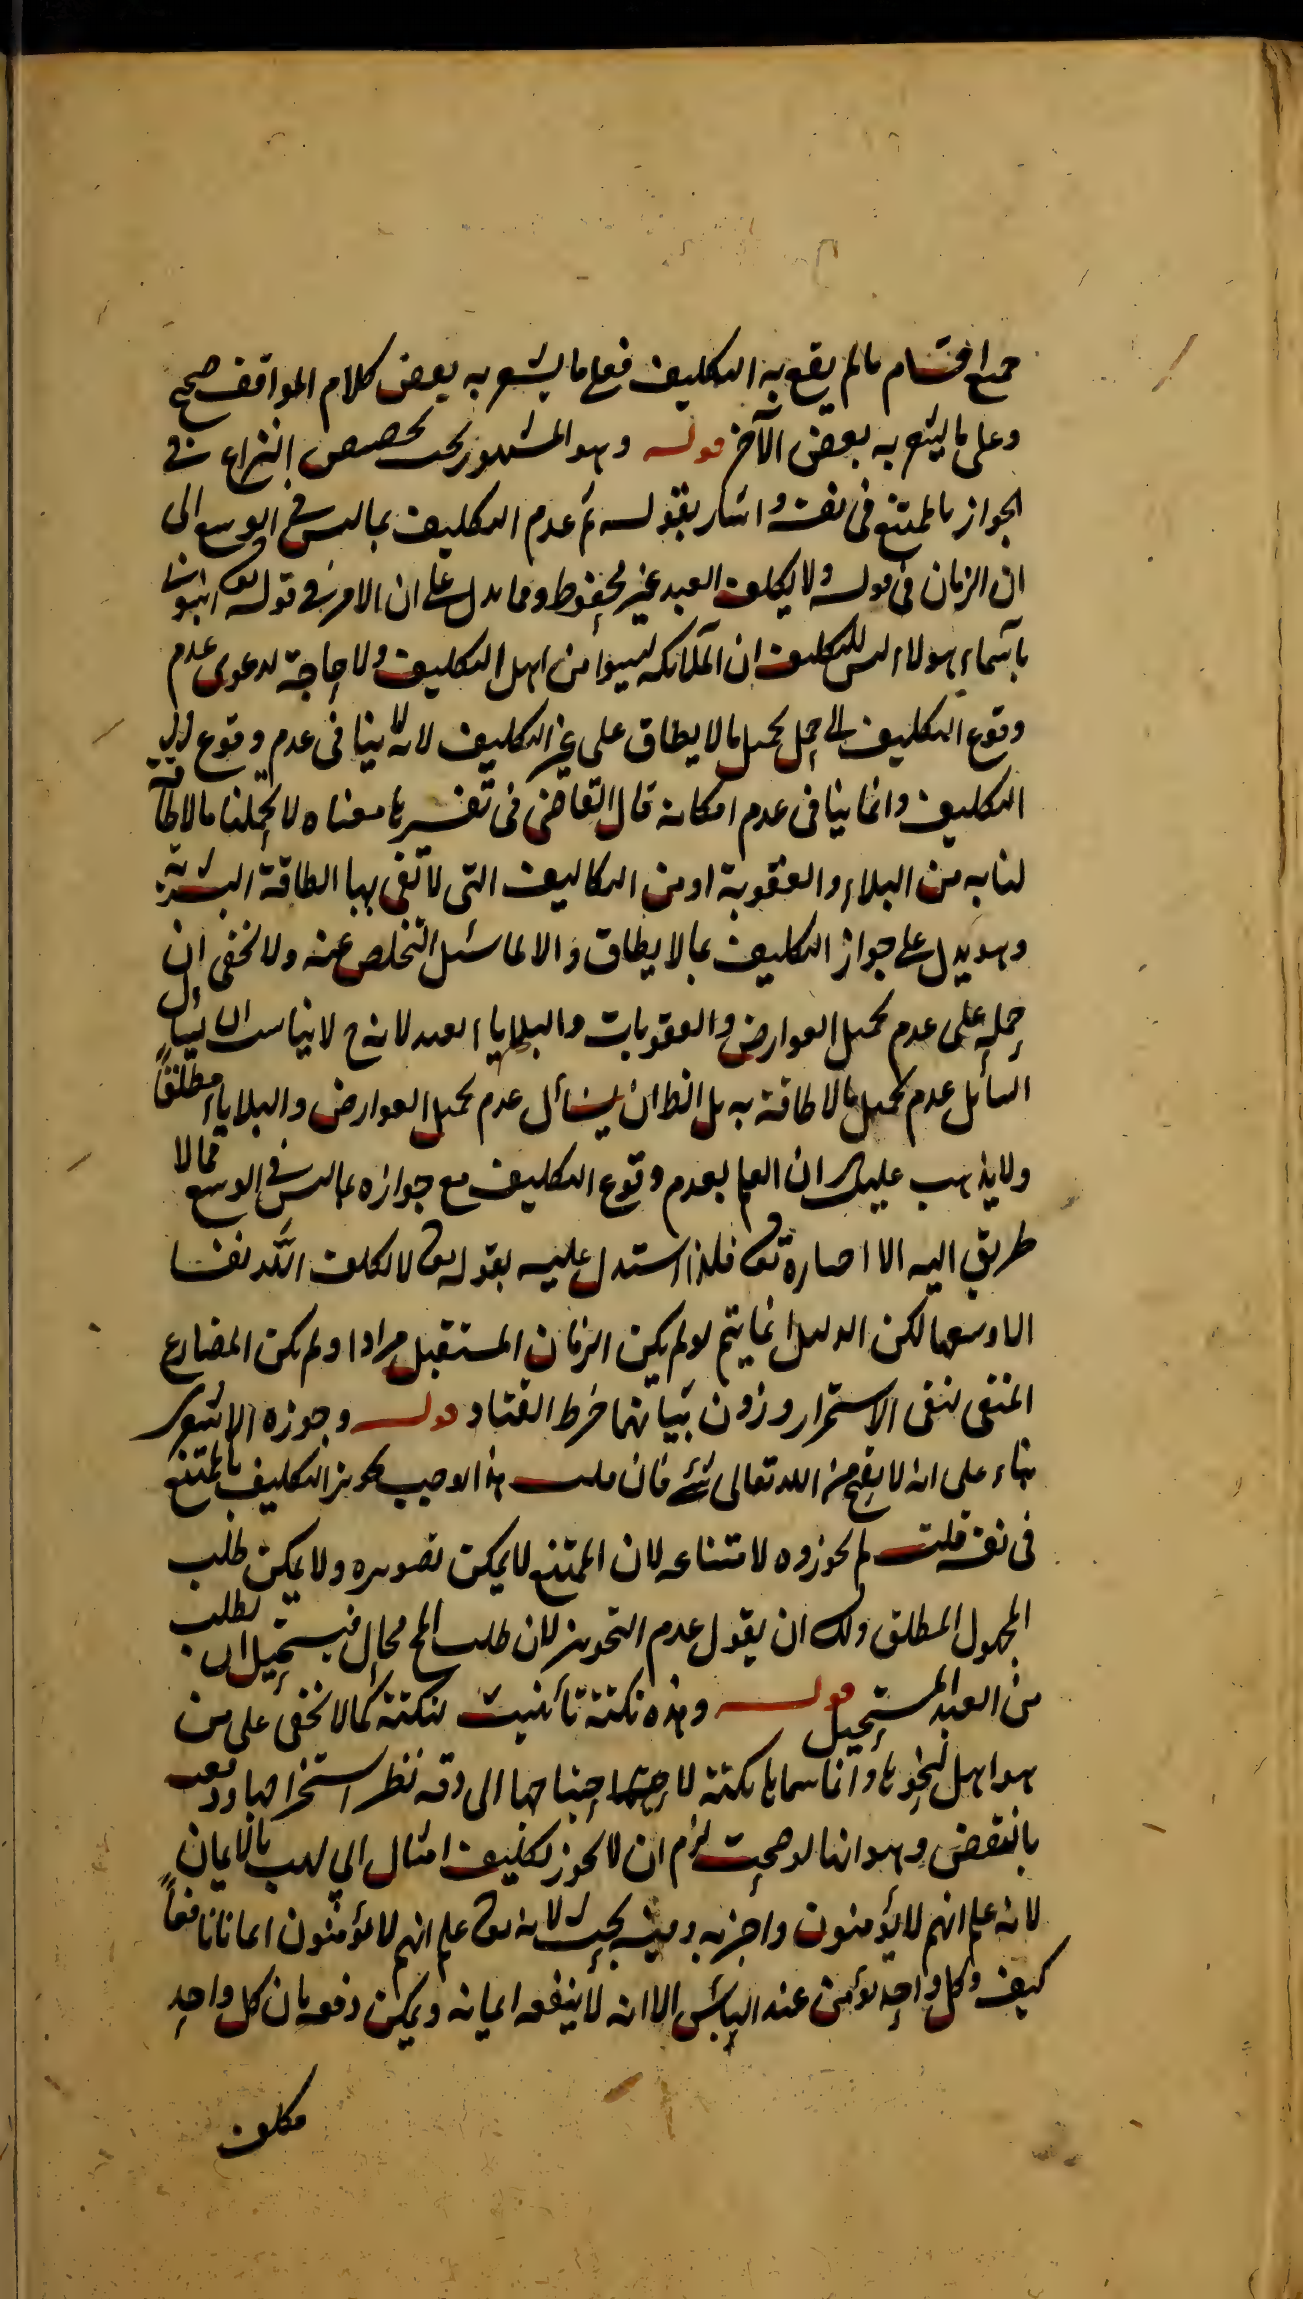 جميع اقسام مالم يقع به التكليف فعلى ما يشعر به بعض كلام المواقف صحيح
وعلى ما يشعر به بعض الآخر قوله وهو المشهور تخصيص النزاع في
الجواز بالممتنع في نفسه واشار بقوله ثم عدم التكليف بما ليس في الوسع الى
ان الزمان في قوله ولا يكلف العبد غير محفوظ ومما يدل على ان الامر في قوله تعالى انبئونى
باسماء هولاء ليس للتكليف ان الملائكة ليسوا من اهل التكليف ولا حاجة لدعوى عدم
وقوع التكليف الى حمل تحميل مالا يطاق على غير التكليف لانه لا ينافى عدم وقوع
التكليف وانما ينافى عدم امكانه قال القاضى فى تفسيرها معناه لا تحملنا مالا طاقة
لنا به من البلاء والعقوبة او من التكاليف التى لا تفى بها الطاقة البشرية
وهو يدل على جواز التكليف بمالا يطاق والا لما سئل التخلص عنه ولا يخفى ان
حمله على عدم تحميل العوارض والعقوبات والبلايا بعيد لانه ح لا يناسب ان يسأل
السائل عدم تحميل مالا طاقة به بل الظ ان يسأل عدم تحميل العوارض والبلايا مطلقاً
ولا يذهب عليك ان العلم بعدم وقوع التكليف مع جوازه بما ليس في الوسع مما لا
طريق اليه الا اخباره تعالى فلذا استدل عليه بقوله تعالى لا يكلف الله نفسا
الا وسعها لكن الدليل انما يتم لو لم يكن الزمان المستقبل مرادا ولم يكن المضارع
المنفى لنفى الاستمرار ودون بيانهما خرط القتاد قوله وجوزه الاشعرى
بناء على انه لا يقبح من الله تعالى شئ فان قلت هذا يوجب تجويز التكليف بالممتنع
فى نفسه قلت لم يجوزوه لامتناعه لان الممتنع لا يمكن تصويره ولا يمكن طلب
المجهول المطلق ولك ان يقول عدم التجويز لان طلب المح محال فيستحيل ان يطلب
من العبد المستحيل قوله وهذه نكتة تأنيث لنكتة كما لا يخفى على من
هو اهل لنحوها وانما سماها نكتة لاحتياجها الى دقة نظر استخراجها ودفعت
بالنقض وهو انها لو صحت لزم ان لا يجوز تكليف امثال ابي لهب بالايمان
لانه علم انهم لا يؤمنون واخبر به وفيه بحث لانه تعالى علم انهم لا يؤمنون ايمانا نافعاً
كيف وكل واحد يؤمن عند اليأس الا انه لا ينفعه ايمانه ويمكن دفعه بان كل واحد
مكلف